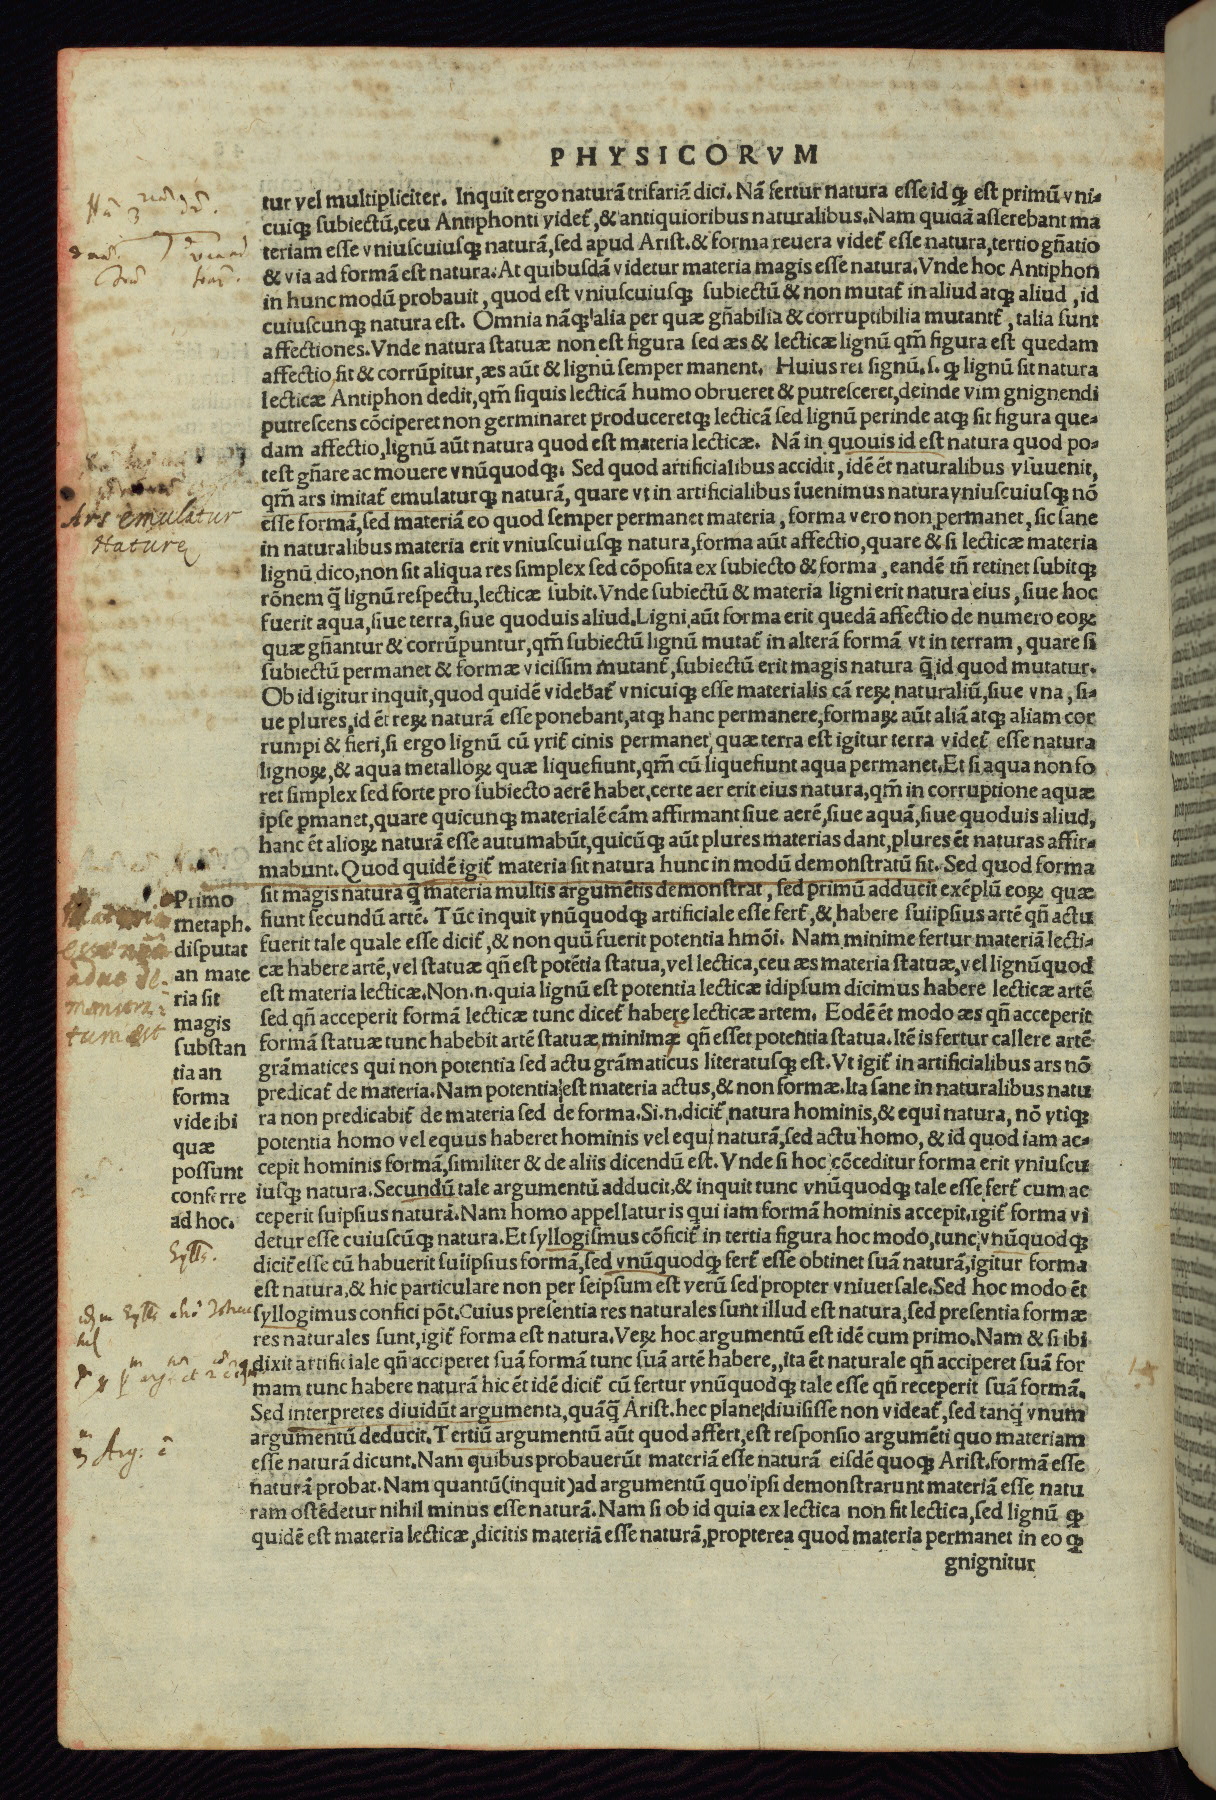 PHYSICORVM
tur vel multipliciter. Inquit ergo naturã trifariã dici. Nã fertur natura esse id ꝙ est primũ vni-
cuiqꝫ subiectũ, ceu Antiphonti videt̃, & antiquioribus naturalibus. Nam quidã asserebant ma
teriam esse vniuscuiusqꝫ naturã, sed apud Arist. & forma reuera videt̃ esse natura, tertio gñatio
& via ad formã est natura. At quibusdã videtur materia magis esse natura. Vnde hoc Antiphon
in hunc modũ probauit, quod est vniuscuiusqꝫ subiectũ & non mutat̃ in aliud atqꝫ aliud, id
cuiuscunqꝫ natura est. Omnia nãqꝫ alia per quæ gñabilia & corruptibilia mutant̃, talia sunt
affectiones. Vnde natura statuæ non est figura sed æs & lecticæ lignũ qm̃ figura est quedam
affectio fit & corrũpitur, æs aũt & lignũ semper manent. Huius rei signũ. s. ꝙ lignũ sit natura
lecticæ Antiphon dedit, qm̃ siquis lecticã humo obrueret & putresceret, deinde vim gnignendi
putrescens cõciperet non germinaret produceretqꝫ lecticã sed lignũ perinde atqꝫ sit figura que-
dam affectio, lignũ aũt natura quod est materia lecticæ. Nã in quouis id est natura quod po-
test gñare ac mouere vnũquodqꝫ. Sed quod artificialibus accidit, idẽ ẽt naturalibus vsuuenit,
qm̃ ars imitat̃ emulaturqꝫ naturã, quare vt in artificialibus iuenimus natura vniuscuiusqꝫ nõ
Ars emulatur
Nature
esse formã, sed materiã eo quod semper permanet materia, forma vero non permanet, sic sane
in naturalibus materia erit vniuscuiusqꝫ natura, forma aũt affectio, quare & si lecticæ materia
lignũ dico, non sit aliqua res simplex sed cõposita ex subiecto & forma, eandẽ tñ retinet subitqꝫ
rõnem q̃ lignũ respectu, lecticæ subit. Vnde subiectũ & materia ligni erit natura eius, siue hoc
fuerit aqua, siue terra, siue quoduis aliud. Ligni aũt forma erit quedã affectio de numero eoꝝ
quæ gñantur & corrũpuntur, qm̃ subiectũ lignũ mutat̃ in alterã formã vt in terram, quare si
subiectũ permanet & formæ vicissim mutant̃, subiectũ erit magis natura q̃ id quod mutatur.
Ob id igitur inquit, quod quidẽ videbat̃ vnicuiqꝫ esse materialis cã reꝝ naturaliũ, siue vna, si-
ue plures, id ẽt reꝝ naturã esse ponebant, atqꝫ hanc permanere, formaꝝ aũt aliã atqꝫ aliam cor
rumpi & fieri, si ergo lignũ cũ vrit̃ cinis permanet, quæ terra est igitur terra videt̃ esse natura
lignoꝝ, & aqua metalloꝝ quæ liquefiunt, qm̃ cũ liquefiunt aqua permanet. Et si aqua non fo
ret simplex sed forte pro subiecto aerẽ habet, certe aer erit eius natura, qm̃ in corruptione aquæ
ipse ꝑmanet, quare quicunqꝫ materialẽ cãm affirmant siue aerẽ, siue aquã, siue quoduis aliud,
hanc ẽt alioꝝ naturã esse autumabũt, quicũqꝫ aũt plures materias dant, plures ẽt naturas affir-
mabunt. Quod quidẽ igit̃ materia sit natura hunc in modũ demonstratũ sit. Sed quod forma
sit magis natura q̃ materia multis argumẽtis demonstrat, sed primũ adducit exẽplũ eoꝝ quæ
fiunt secundũ artẽ. Tũc inquit vnũquodqꝫ artificiale esse fert̃, & habere suiipsius artẽ qñ actu
fuerit tale quale esse dicit̃, & non quũ fuerit potentia hmõi. Nam minime fertur materiã lecti-
cæ habere artẽ, vel statuæ qñ est potẽtia statua, vel lectica, ceu æs materia statuæ, vel lignũ quod
est materia lecticæ. Non .n. quia lignũ est potentia lecticæ idipsum dicimus habere lecticæ artẽ
sed qñ acceperit formã lecticæ tunc dicet̃ habere lecticæ artem. Eodẽ ẽt modo æs qñ acceperit
formã statuæ tunc habebit artẽ statuæ, minimæ qñ esset potentia statua. Itẽ is fertur callere artẽ
grãmatices qui non potentia sed actu grãmaticus literatusqꝫ est. Vt igit̃ in artificialibus ars nõ
predicat̃ de materia. Nam potentia est materia actus, & non formæ. Ita sane in naturalibus natu
ra non predicabit̃ de materia sed de forma. Si .n. dicit̃ natura hominis, & equi natura, nõ vtiqꝫ
potentia homo vel equus haberet hominis vel equi naturã, sed actu homo, & id quod iam ac-
cepit hominis formã, similiter & de aliis dicendũ est. Vnde si hoc cõceditur forma erit vniuscu
iusqꝫ natura. Secundũ tale argumentũ adducit, & inquit tunc vnũquodqꝫ tale esse fert̃ cum ac
ceperit suipsius naturã. Nam homo appellatur is qui iam formã hominis accepit. igit̃ forma vi
detur esse cuiuscũqꝫ natura. Et syllogismus cõficit̃ in tertia figura hoc modo, tunc vnũquodqꝫ
dicit̃ esse cũ habuerit suiipsius formã, sed vnũquodqꝫ fert̃ esse obtinet suã naturã, igitur forma
est natura, & hic particulare non per seipsum est verũ sed propter vniuersale. Sed hoc modo ẽt
syllogimus confici põt. Cuius presentia res naturales sunt illud est natura, sed presentia formæ
res naturales sunt, igit̃ forma est natura. Veꝝ hoc argumentũ est idẽ cum primo. Nam & si ibi
dixit artificiale qñ acciperet suã formã tunc suã artẽ habere,, ita ẽt naturale qñ acciperet suã for
mam tunc habere naturã hic ẽt idẽ dicit̃ cũ fertur vnũquodqꝫ tale esse qñ receperit suã formã.
Sed interpretes diuidũt argumenta, quãq̃ Arist. hec plane diuisisse non videat̃, sed tanq̃ vnum
argumentũ deducit. Tertiũ argumentũ aũt quod affert, est responsio argumẽti quo materiam
esse naturã dicunt. Nam quibus probauerũt materiã esse naturã eisdẽ quoqꝫ Arist. formã esse
naturã probat. Nam quantũ (inquit) ad argumentũ quo ipsi demonstrarunt materiã esse natu
ram ostẽdetur nihil minus esse naturã. Nam si ob id quia ex lectica non fit lectica, sed lignũ ꝙ
quidẽ est materia lecticæ, dicitis materiã esse naturã, propterea quod materia permanet in eo ꝙ
gnignitur
Primo
metaph.
disputat
an mate
ria sit
magis
substan
tia an
forma
vide ibi
quæ
possunt
conferre
ad hoc.
Arg: